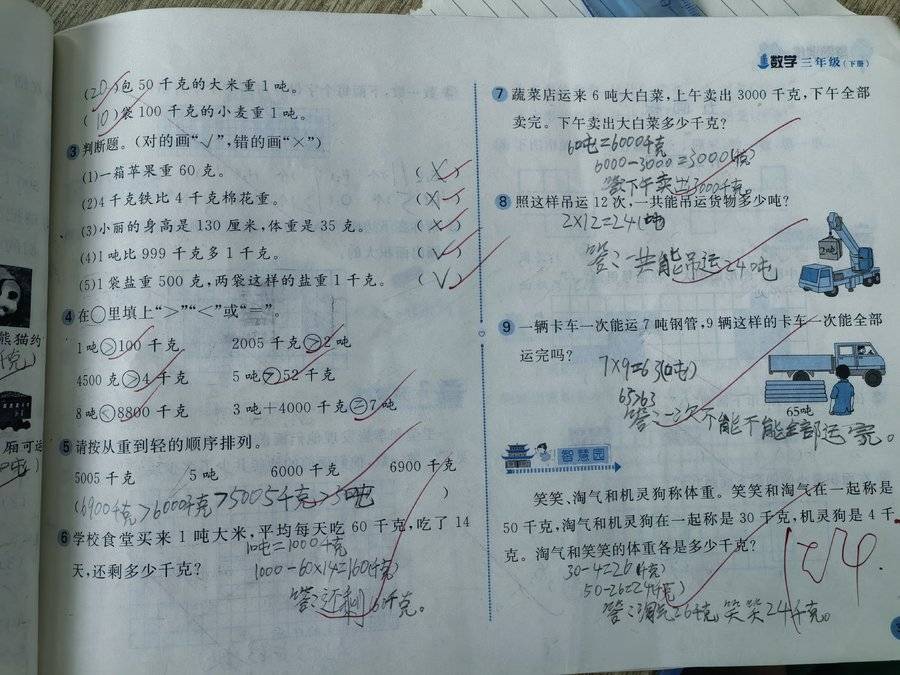 数学 三年级(下册)
(20)包 50 千克的大米重 1 吨。
(10)袋 100 千克的小麦重 1 吨。
3 判断题。(对的画“√”,错的画“×”)
(1)一箱苹果重 60 克。 (×)
(2)4 千克铁比 4 千克棉花重。 (×)
(3)小丽的身高是 130 厘米,体重是 35 克。 (×)
(4)1 吨比 999 千克多 1 千克。 (√)
(5)1 袋盐重 500 克,两袋这样的盐重 1 千克。 (√)
4 在○里填上“>”“<”或“=”。
1 吨>100 千克 2005 千克>2 吨
4500 克>4 千克 5 吨>52 千克
8 吨<8800 千克 3 吨+4000 千克=7 吨
5 请按从重到轻的顺序排列。
5005 千克 5 吨 6000 千克 6900 千克
(6900千克>6000千克>5005千克>5吨 )
6 学校食堂买来 1 吨大米,平均每天吃 60 千克,吃了 14
天,还剩多少千克?
1吨=1000千克
1000-60×14=160(千克)
答:还剩 千克。
7 蔬菜店运来 6 吨大白菜,上午卖出 3000 千克,下午全部
卖完。下午卖出大白菜多少千克?
6吨=6000千克
6000-3000=3000(千克)
答:下午卖出3000千克。
8 照这样吊运 12 次,一共能吊运货物多少吨?
2×12=24(吨)
答:一共能吊运24吨
2吨
9 一辆卡车一次能运 7 吨钢管,9 辆这样的卡车一次能全部
运完吗?
7×9=63(吨)
65>63
答:一次不能不能全部运完。
65吨
智慧园
笑笑、淘气和机灵狗称体重。笑笑和淘气在一起称是
50 千克,淘气和机灵狗在一起称是 30 千克,机灵狗是 4 千
克。淘气和笑笑的体重各是多少千克?
30-4=26(千克)
50-26=24(千克)
答:淘气26千克,笑笑24千克。
熊猫约
千克)
厢可运
吨)